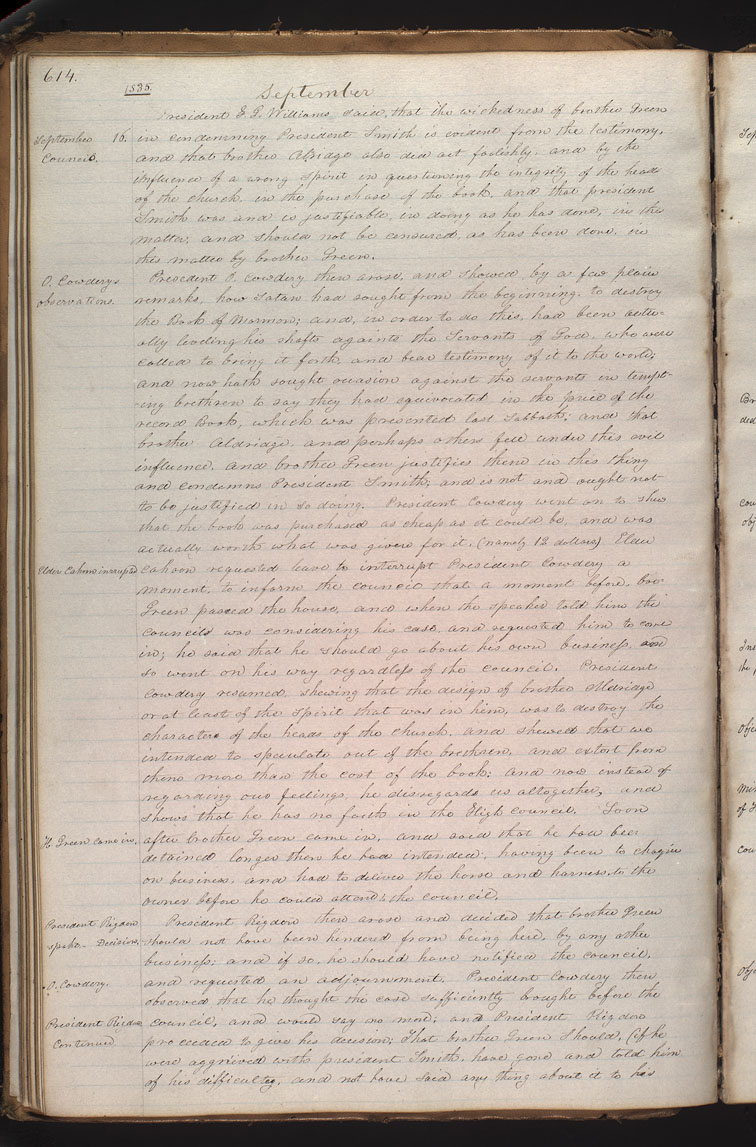 614.
1835.
September
President F. G. Williams, said, that the wickedness of brother Green
September 16. in condemning President Smith is evident from the testimony,
Council. and that brother Aldridge also did act foolishly, and by the
influence of a wrong spirit in questioning the integrity of the head
of the church, in the purchase of the book, and that president
Smith was and is justifiable, in doing as he has done, in this
matter, and should not be censured, as has been done, in
this matter by brother Green.
O. Cowderys President O. Cowdery then arose, and showed by a few plain
observations. remarks, how Satan had sought from the beginning, to destroy
the Book of Mormon; and, in order to do this, had been actu-
ally leveling his shafts againts the Servants of God, who were
called to bring it forth, and bear testimony of it to the world;
and now hath sought occasion against the servants in tempt-
-ing brethren to say they had equivocated in the price of the
record Book, which was presented last Sabbath; and that
brother Aldridge, and perhaps others fell under this evil
influence, and brother Green justifies them in this thing
and condemns President Smith; and is not and ought not
to be justified in so doing. President Cowdery went on to shew
that the book was purchased as cheap as it could be, and was
actually worth what was given for it, (namely 12 dollars) Elder
Elder Cahoon inrrupted Cahoon requested leave to interrupt President Cowdery a
moment, to inform the council that a moment before, bro-
Green passed the house, and when the speaker told him the
councils was considering his case, and requested him to come
in; he said that he should go about his own business, and
so went on his way regardless of the council. President
Cowdery resumed, shewing that the design of brother Aldridge
or at least of the spirit that was in him, was to destroy the
character of the heads of the church, and shewed that we
intended to speculate out of the brethren, and extort from
them more than the cost of the book; and now instead of
regarding our feelings, he disregards us altogether, and
shows that he has no faith in the High council. Soon
H. Green came in. after brother Green came in, and said that he had been
detained longer then he had intended, having been to chagrin
on business, and had to deliver the horse and harness to the
owner before he could attend the council.
President Rigdon President Rigdon then arose and decided that brother Green
spoke. Decision. should not have been hendered from being here, by any other
business; and if so, he should have notified the council,
O. Cowdery. and requested an adjournment. President Cowdery then
observed that he thought the case sufficiently bought before the
President Rigdon council, and would say no more; and President Rigdon
Continued proceeded to give his decision; That brother Green should, (if he
were aggrieved with president Smith, have gone and told him
of his difficulty, and not have said any thing about it to his